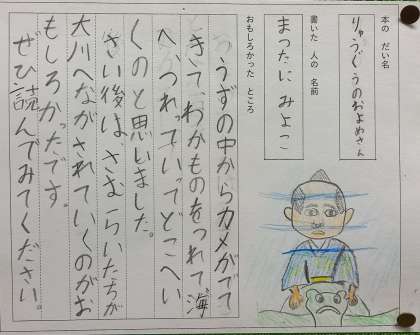 本の だい名
りゅうぐうのおよめさん
書いた 人の 名前
まつたに みよこ
おもしろかった ところ
うずの中からカメがでて
きて、わかものをつれて海
へ、つれっていってどこへい
くのと思いました。
さい後は、さむらいたちが
大川へながされていくのがお
もしろかったです。
ぜひ読んでみてください。